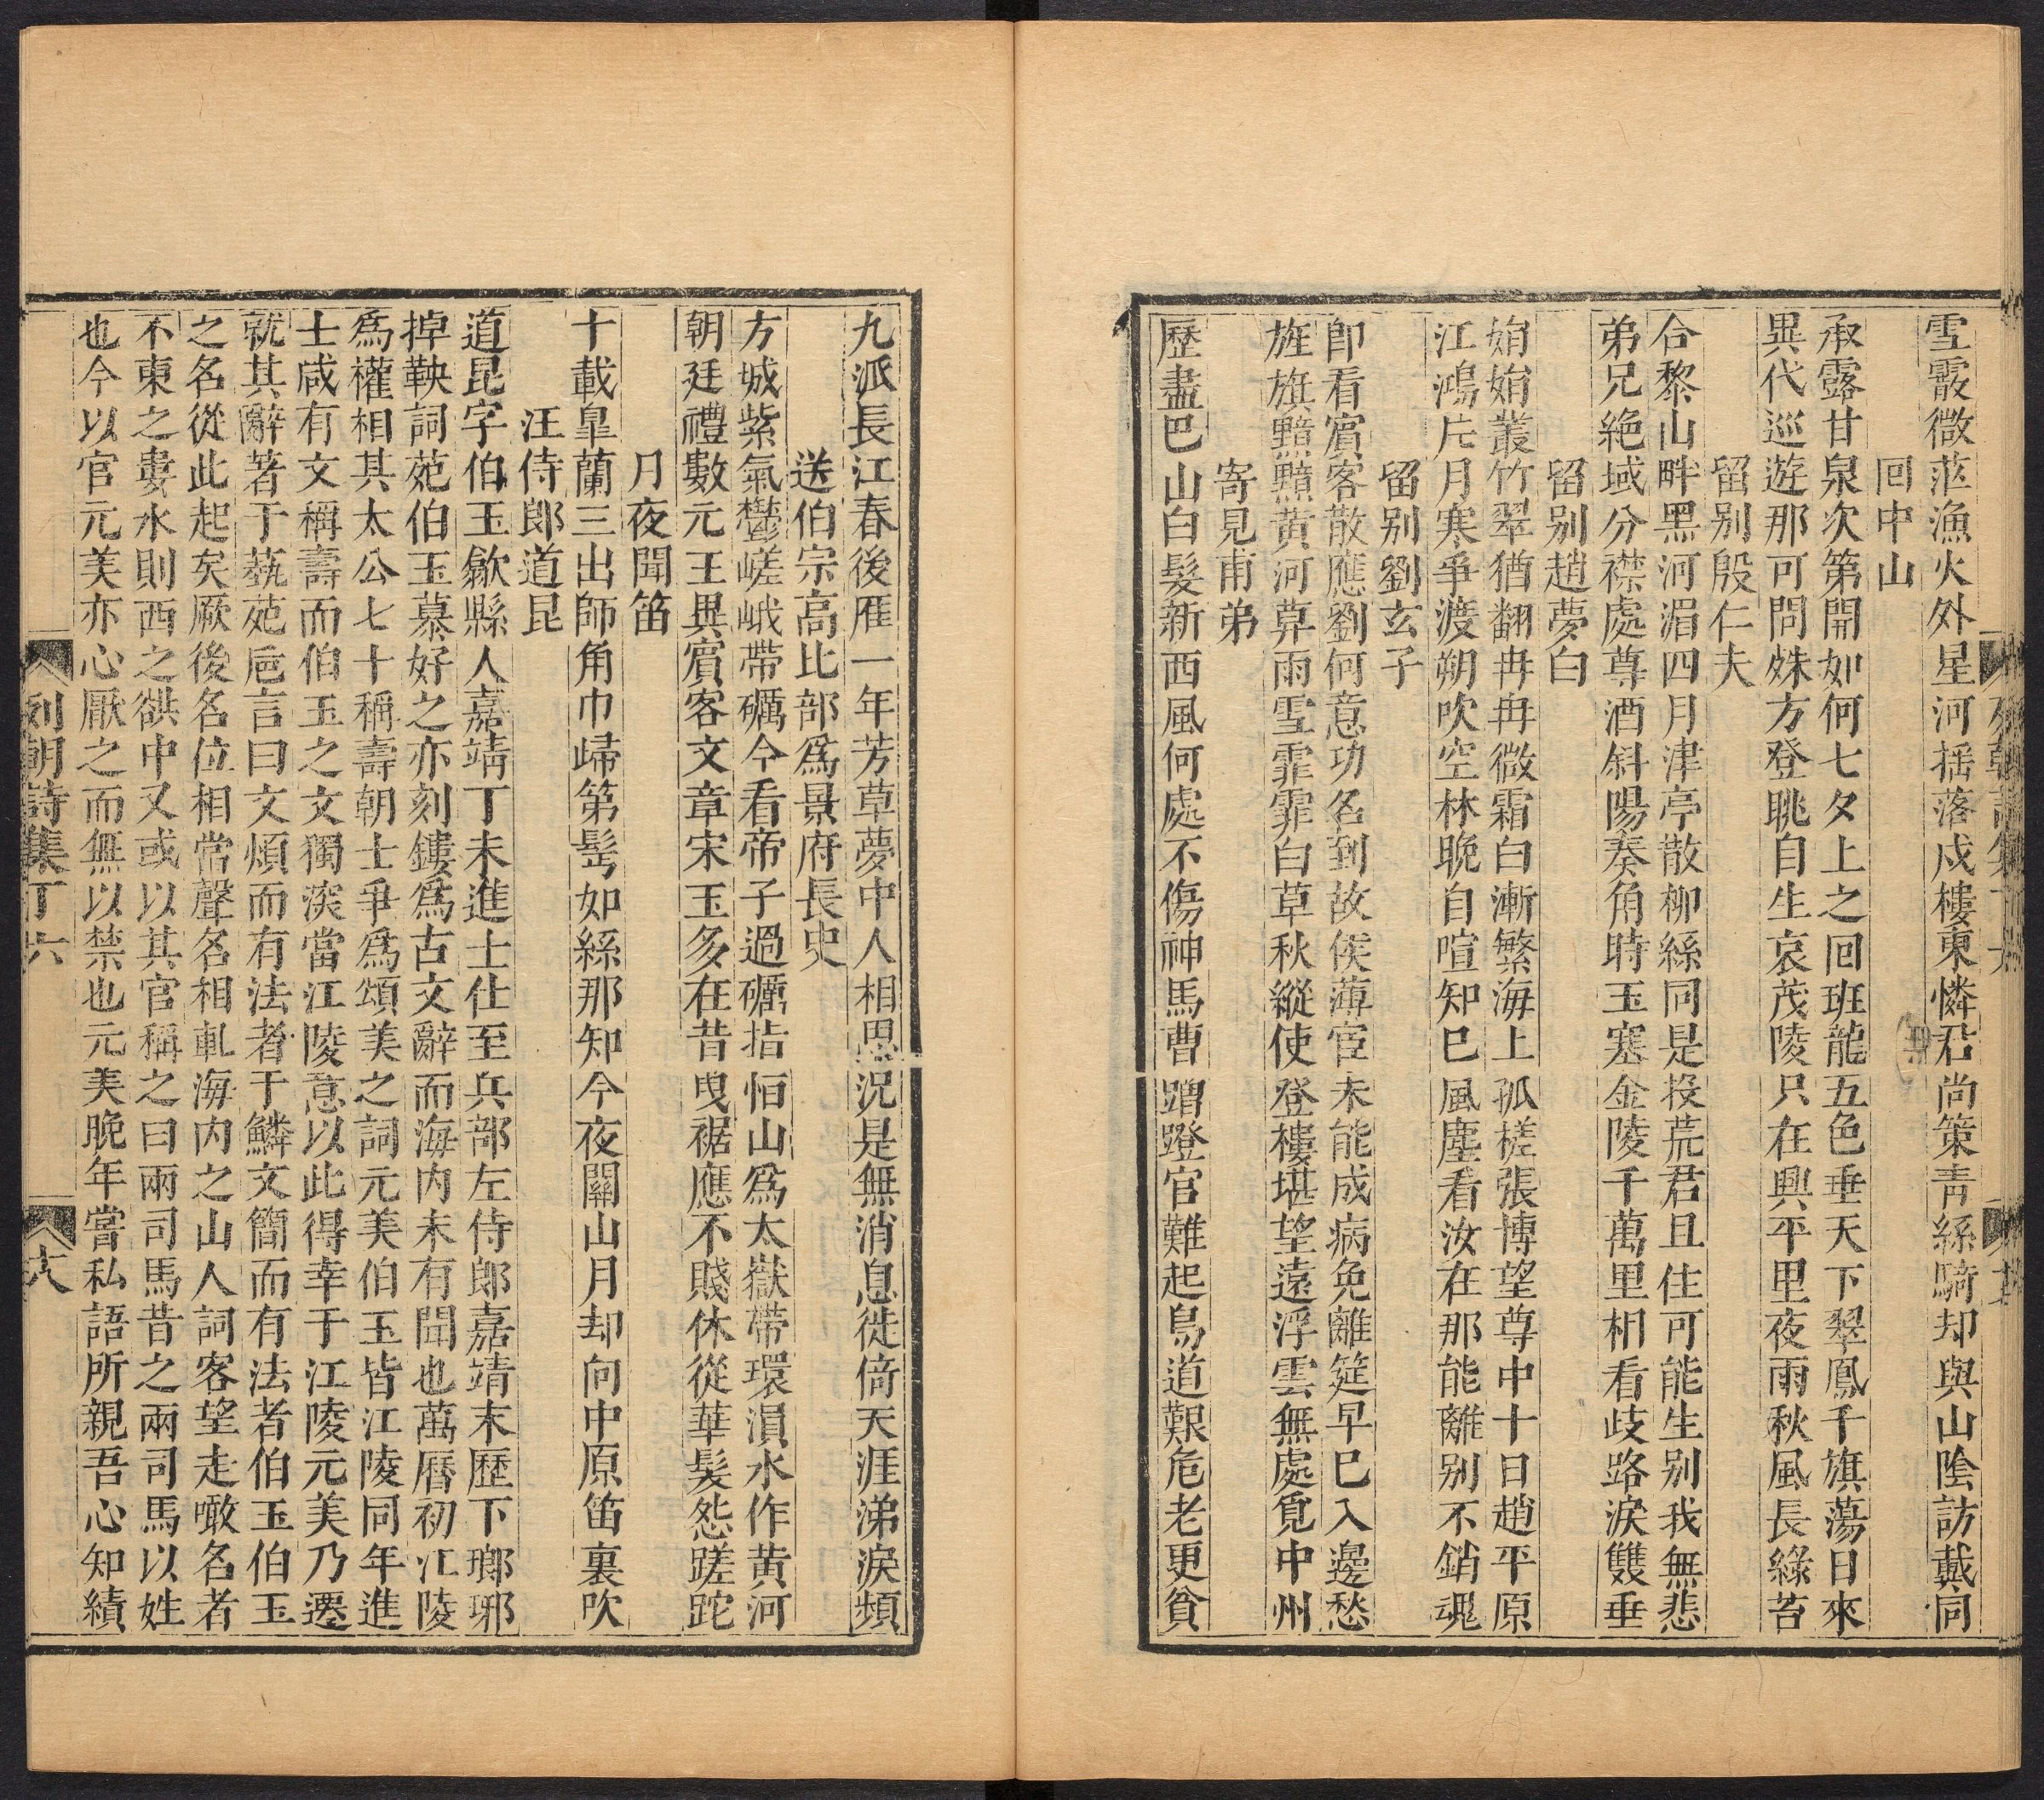 雪霰微茫漁火外星河揺落戍樓東憐君尚策青絲騎却與山陰訪戴同
回中山
承露甘泉次第開如何七夕上之回班龍五色垂天下翠鳳千旗蕩日來
異代巡遊那可問殊方登眺自生哀茂陵只在興平里夜雨秋風長綠苔
留别殷仁夫
合黎山畔黑河湄四月津亭散柳絲同是投荒君且住可能生别我無悲
弟兄絶域分襟處尊酒斜陽奏角時玉塞金陵千萬里相看歧路淚雙垂
留别趙夢白
娟娟叢竹翠猶翻冉冉微霜白漸繁海上孤槎張博望尊中十日趙平原
江鴻片月寒爭渡朔吹空林晚自喧知巳風塵看汝在那能離别不銷魂
留别劉玄子
卽看賓客散應劉何意功名到故侯薄宦未能成病免離筵早巳入邊愁
旌旗黯黯黄河莫雨雪霏霏白草秋縱使登樓堪望遠浮雲無處覓中州
寄見甫弟
歷盡巴山白髮新西風何處不傷神馬曹蹭蹬官難起鳥道艱危老更貧
九派長江春後雁一年芳草夢中人相思況是無消息徙倚天涯涕淚頻
送伯宗高比部爲景府長史
方城紫氣鬱嵯峨帶礪今看帝子過礪指恒山爲太嶽帶環湨水作黄河
朝廷禮數元王異賓客文章宋玉多在昔曳裾應不賤休從華髮怨蹉跎
月夜聞笛
十載皐蘭三出師角巾歸第髩如絲那知今夜關山月却向中原笛裏吹
汪侍郎道昆
道昆字伯玉歙縣人嘉靖丁未進士仕至兵部左侍郎嘉靖末歷下瑯琊
掉鞅詞苑伯玉慕好之亦刻鏤爲古文辭而海内未有聞也萬曆初江陵
爲權相其太公七十稱壽朝士爭爲頌美之詞元美伯玉皆江陵同年進
士咸有文稱壽而伯玉之文獨深當江陵意以此得幸于江陵元美乃遷
就其辭著于藝苑巵言曰文煩而有法者于鱗文簡而有法者伯玉伯玉
之名從此起矣厥後名位相當聲名相軋海内之山人詞客望走噉名者
不東之婁水則西之谼中又或以其官稱之曰兩司馬昔之兩司馬以姓
也今以官元美亦心厭之而無以禁也元美晚年嘗私語所親吾心知績
列朝詩集丁六 六